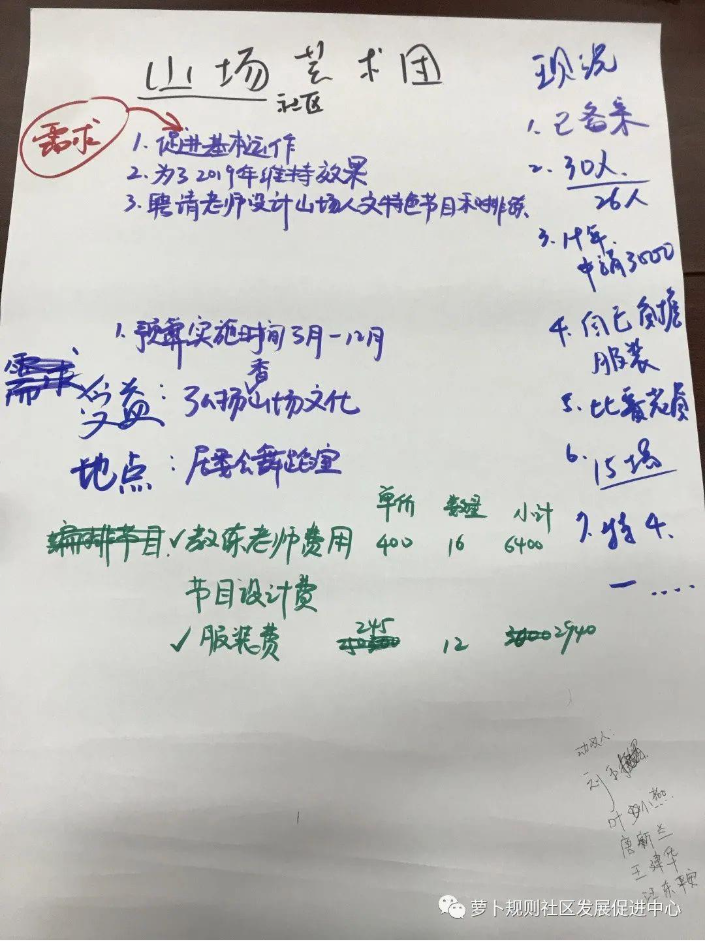 山场艺术团
社区
需求
1. 促进基本运作
2. 为了2019年维持效果
3. 聘请老师设计山场人文特色节目和排
1. 预算实施时间3月-12月
香
需求
公益：弘扬山场文化
地点：居委会舞蹈室
单价 数量 小计
编排节目 ✓教练老师费用 400 16 6400
节目设计费
✓服装费 245 12 2940
现况
1. 已备案
2. 30人
26人
3. 年
申请3000
4. 自己负担
服装
5. 比赛
6. 15场
7. 特4.
一 ....
动议人：
刘
叶小燕
唐新兰
王建华
东
萝卜规则社区发展促进中心